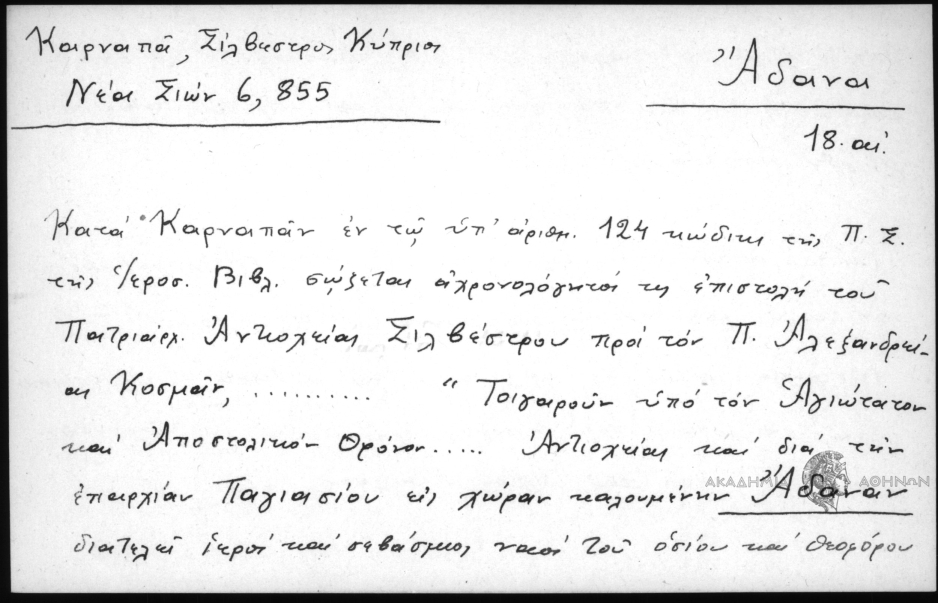 Καρναπᾶ, Σίλβεστρος Κύπριος
Νέα Σιών 6, 855
Ἄδανα
18. αἰ.
Κατά Καρναπᾶν ἐν τῷ ὑπ' ἀριθμ. 124 κώδικι τῆς Π. Σ.
τῆς Ἱεροσ. Βιβλ. σῴζεται ἀχρονολόγητος τις ἐπιστολή τοῦ
Πατριάρχ. Ἀντιοχείας Σιλβέστρου πρός τόν Π. Ἀλεξανδρεί-
ας Κοσμᾶν, .......... "Τοιγαροῦν ὑπό τόν Ἁγιώτατον
καί Ἀποστολικόν Θρόνον..... Ἀντιοχείας καί διά τήν
ἐπαρχίαν Παγιασίου εἰς χώραν καλουμένην Ἄδαναν
διατελεῖ ἱερός καί σεβάσμιος ναός τοῦ ὁσίου καί θεοφόρου
ΑΚΑΔΗΜΙΑ ΑΘΗΝΩΝ